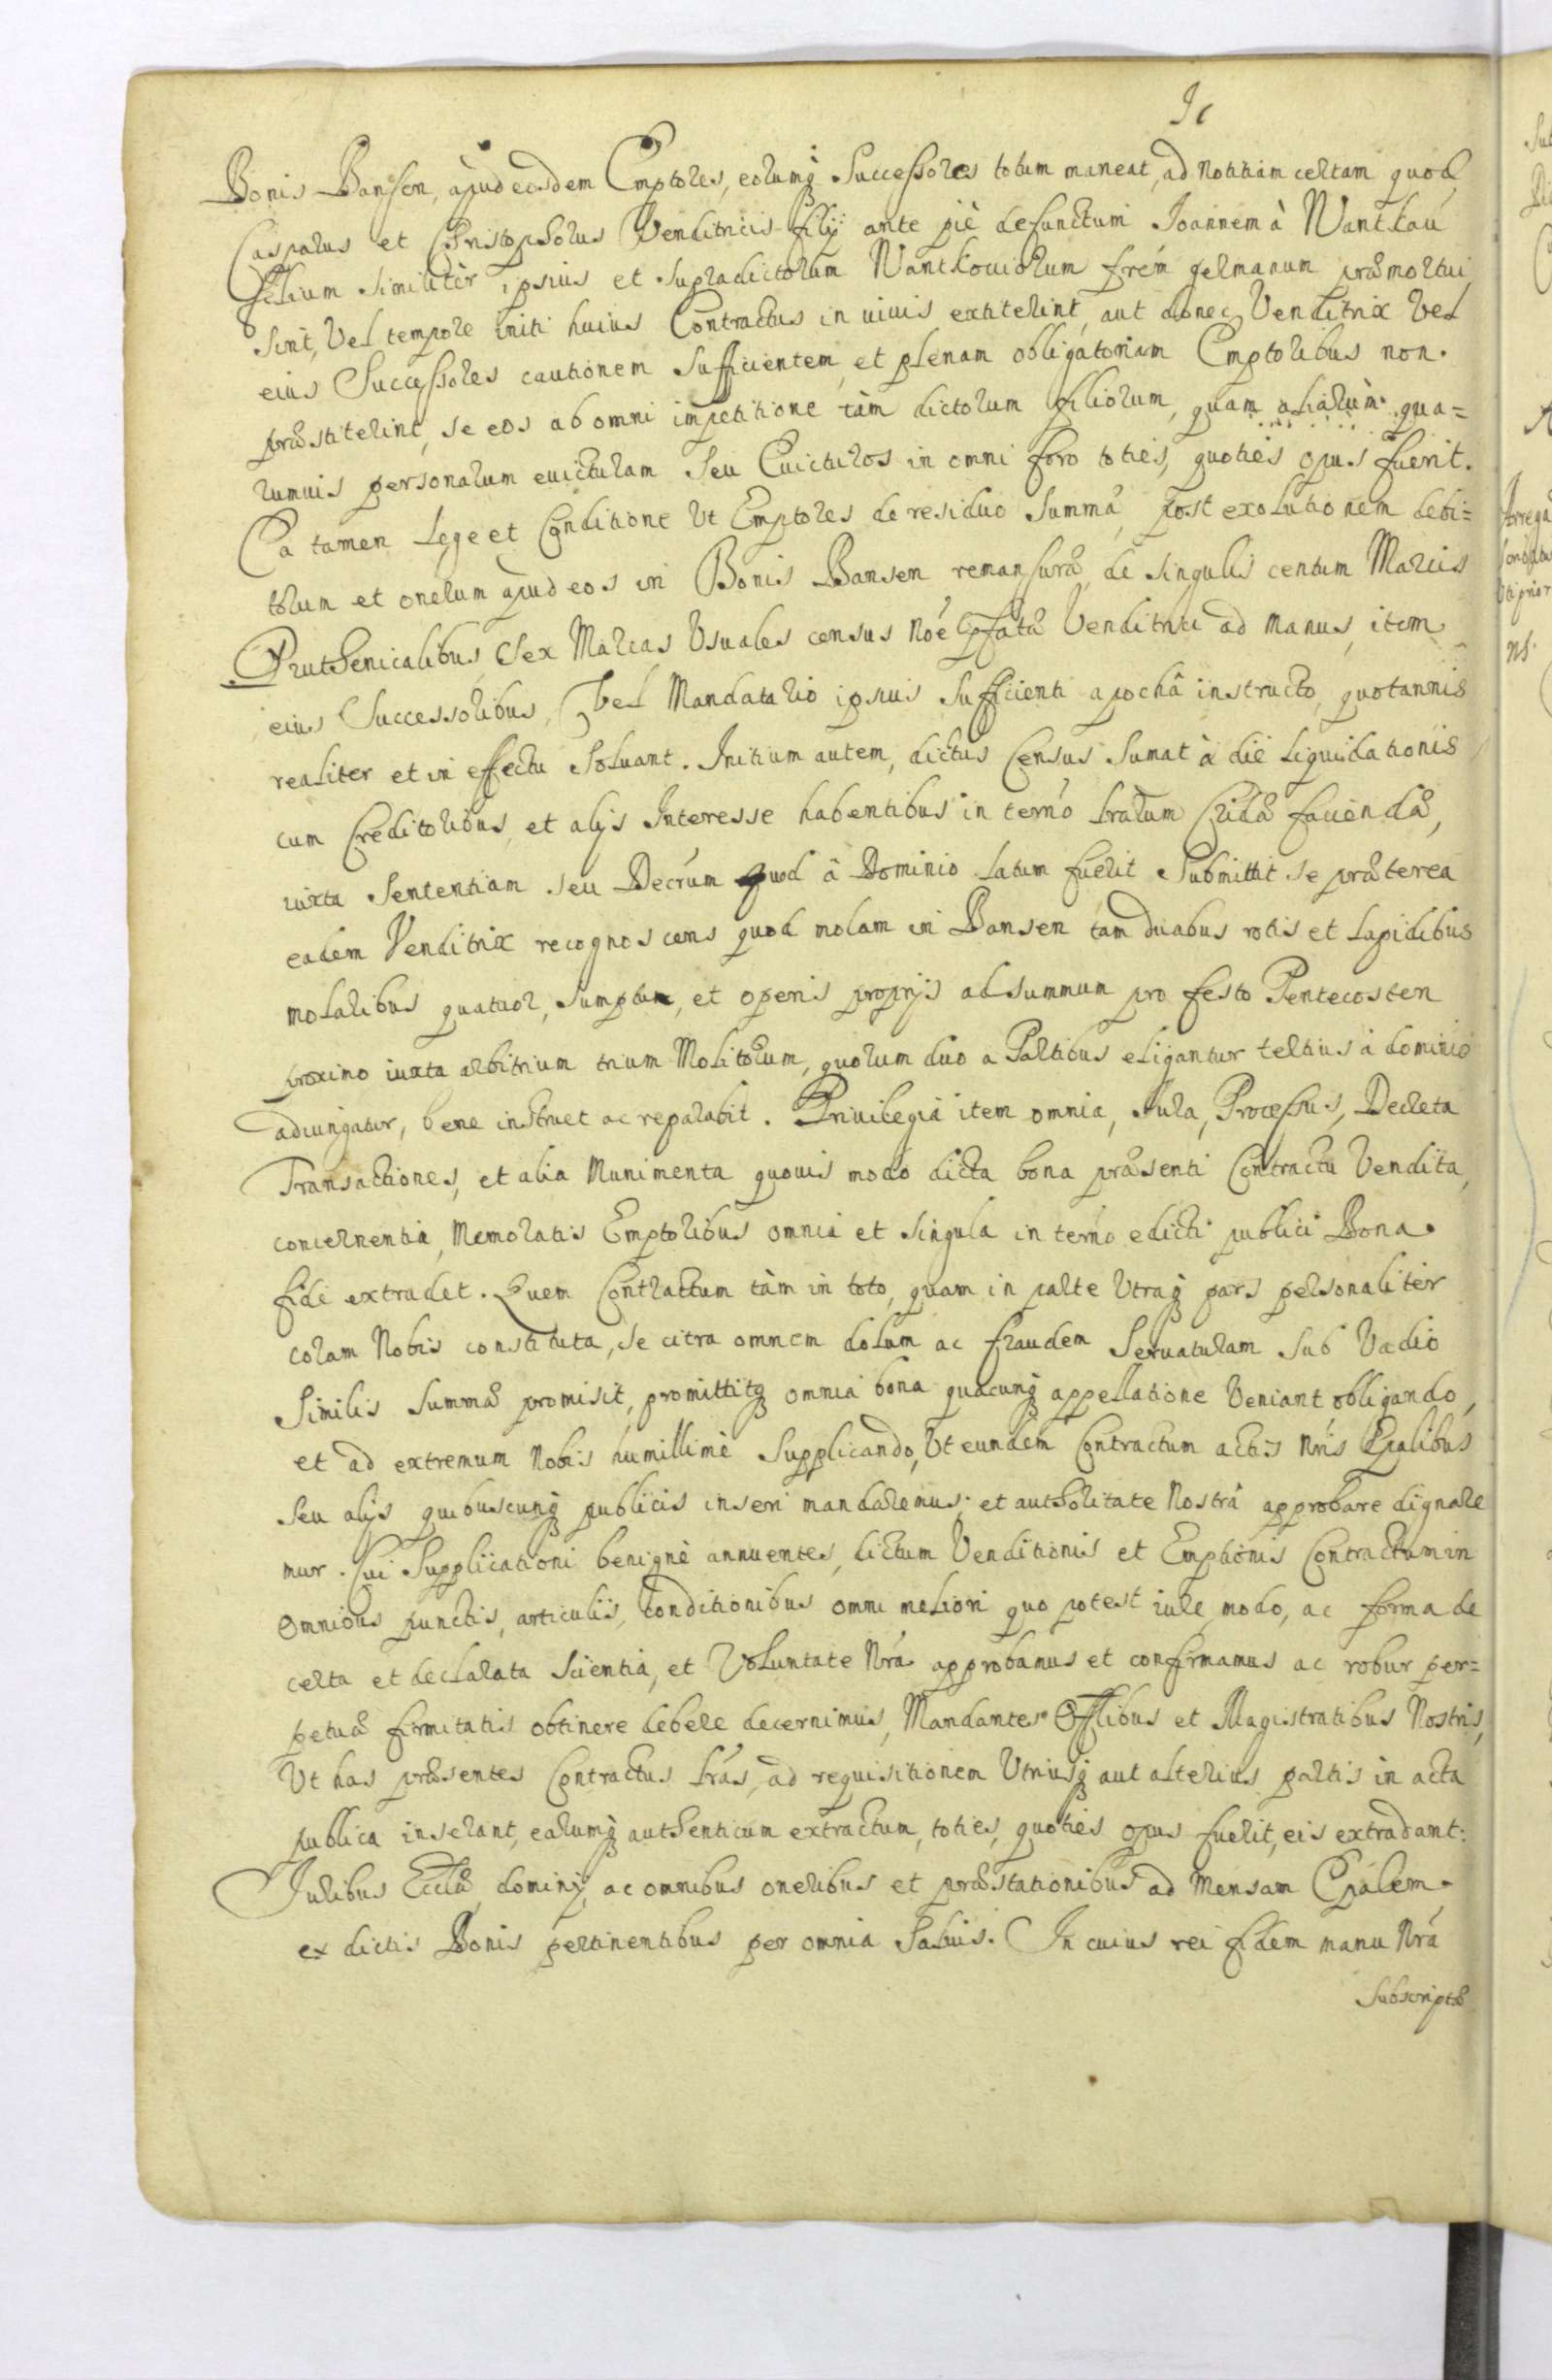 Bonis Bansen, apud eosdem Emptores, eorumq Successores totum maneat, ad notitiam certam quod
Casparus et Christophorus Venditricis filij ante piè defunctum Joannem à Wantkau
filium similitèr ipsius et supradictorum Wantkoviorum frém germanum præmortui
sint, Vel tempore initi huius Contractus in vivis extiterint, aut donec Venditrix Vel
eius Successores cautionem sufficientem, et plenam obligatoriam Emptoribus non
præstiterint, se eos ab omni impetitione tàm dictorum filiorum, quam aliarùm qua=
rumvis personarum evicturam seu Evicturos in omni foro toties, quoties opus fuerit.
Ea tamen Lege et Conditione Ut Emptores de residuo summâ, post exolutionem debi=
torum et onerum apud eos in Bonis Bansen remansurâ, de singulis centum Marcis
Pruthenicalibus, Sex Marcas Usuales census noé pfatæ Venditrici ad manus, item
eius Successoribus, Vel Mandatario ipsius sufficienti apochâ instructo, quotannis
realiter et in effectu soluant. Initium autem, dictus Census sumat à die liquidationis
cum Creditoribus, et alijs Interesse habentibus in termo lrarum Cridæ faciendæ,
iuxta Sententiam seu Decrúm quod à Dominio latum fuerit Submittit se præterea
eadem Venditrix recognoscens quod molam in Bansen tam duabus rotis et lapidibus
molaribus quatuor, sumptu, et operis proprijs ad summum pro festo Pentecosten
proximo iuxta arbitrium trium Molitorum, quorum duo a Partibus eligantur tertius à dominio
adiungatur, bene instruet ac reparabit. Privilegia item omnia, Jura, Processus, Decreta
Transactiones, et alia Munimenta quovis modo dicta bona præsenti Contractu Vendita,
concernentia, Memoratis Emptoribus omnia et singula in termo edicti publici Bona
fide extradet. Quem Contractum tàm in toto, quam in parte Utraq pars personalitèr
coram Nobis constituta, se citra omnem dolum ac fraudem Servaturam sub Vadio
Similis summæ promisit, promittitq omnia bona quacunq appellatione Veniant obligando,
et ad extremum Nobis humillimè supplicando, Ut eundem Contractum actis Nris Epalibus
seu alijs quibuscunq publicis inseri mandaremus, et authoritate Nostrâ approbare dignare
mur. Cui Supplicationi benignè annuentes, dictum Venditionis et Emptionis Contractum in
omnibus punctis, articulis, conditionibus omni meliori quo potest iure, modo, ac forma de
certa et declarata scientia, et Voluntate Nrá approbamus et confirmamus ac robur per=
petuæ firmitatis obtinere debere decernimus, Mandantes Offlibus et Magistratibus Nostris,
Ut has præsentes Contractus lrás, ad requisitionem Utriusq aut alterius partis in acta
publica inserant, earumq authenticum extractum, toties, quoties opus fuerit, eis extradant:
Juribus Ecclæ, dominij, ac omnibus oneribus et præstationibus ad Mensam Epalem
ex dictis Bonis pertinentibus per omnia salvis. In cuius rei fidem manu Nrá
Subscriptæ